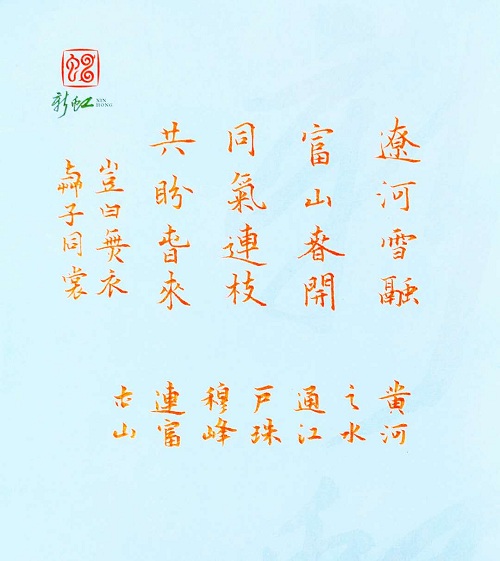 新虹
XIN
HONG
遼河雪融
富山春開
同氣連枝
共盼旾來
豈曰無衣
子同裳
黄河
之水
通江
戸珠
穆峰
連富
古山